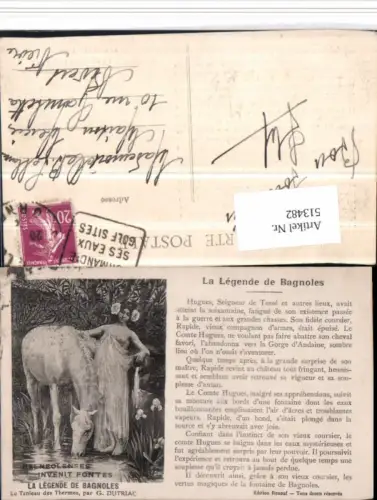 Artikel Nr.
513482
RTE POSTA
Adresse
20
SES EAUX
GOLF SITES
La Légende de Bagnoles
Hugues, Seigneur de Tessé et autres lieux, avait
atteint la soixantaine, fatigué de son existence passée
à la guerre et aux grandes chasses. Son fidèle coursier,
Rapide, vieux compagnon d'armes, était épuisé. Le
Comte Hugues, ne voulant pas faire abattre son cheval
favori, l'abandonna vers la Gorge d'Andaine, sombre
lieu où l'on n'osait s'aventurer.
Quelque temps après, à la grande surprise de son
maître, Rapide revint au château tout fringant, hennis-
sant et semblant avoir retrouvé sa vigueur et sa sou-
plesse d'antan.
Le Comte Hugues, malgré ses appréhensions, suivit
sa monture aux bords d'une fontaine dont les eaux
bouillonnantes emplissaient l'air d'âcres et troublantes
vapeurs. Rapide, d'un bond, s'était plongé dans la
source et s'y abreuvait avec joie.
Confiant dans l'instinct de son vieux coursier, le
comte Hugues se baigna dans les eaux mystérieuses et
fut agréablement surpris par leur pouvoir. Il poursuivit
l'expérience et retrouva au bout de quelque temps une
souplesse qu'il croyait à jamais perdue.
Il découvrit ainsi, grâce à son vieux coursier, les
vertus magiques de la fontaine de Bagnoles.
INVENIT FONTES
LA LÉGENDE DE BAGNOLES
Le Tableau des Thermes, par G. DUTRIAC
Edition Dreaud - Tous droits réservés